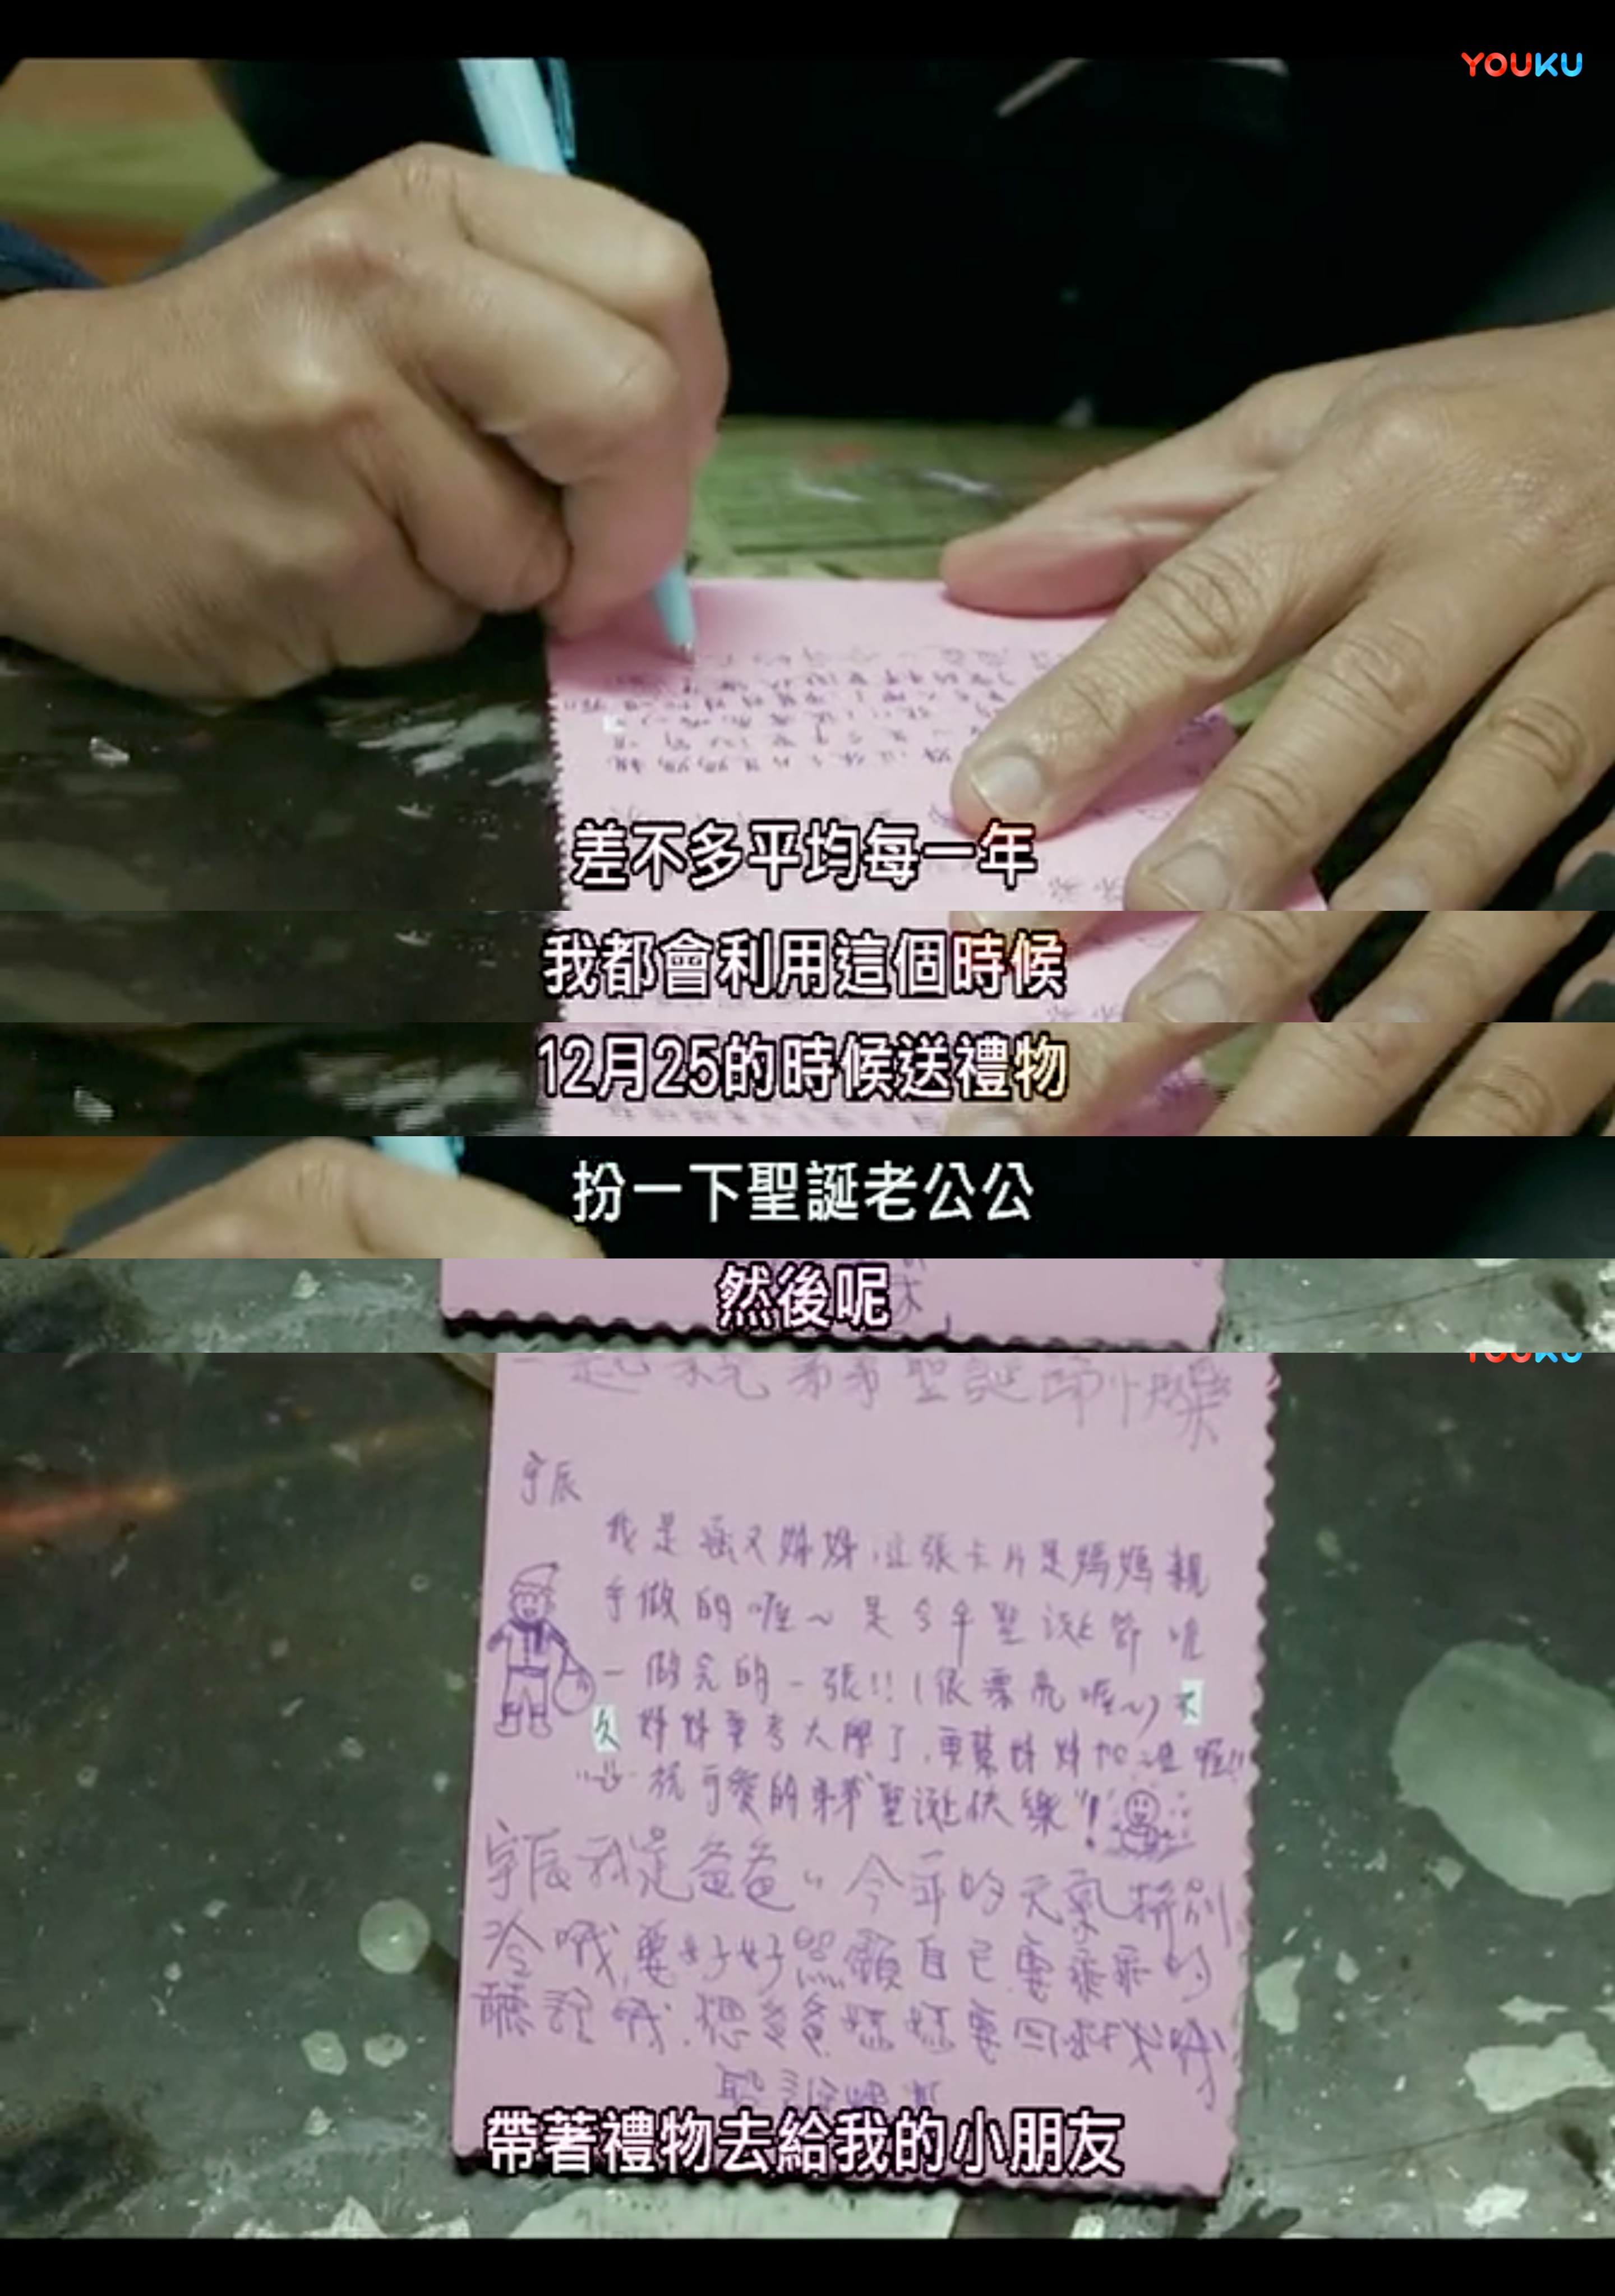 YOUKU
差不多平均每一年
我都會利用這個時候
12月25的時候送禮物
扮一下聖誕老公公
然後呢
一起祝弟弟聖誕節快樂
宇辰
我是 姊姊,這張卡片是媽媽親
手做的喔~是今年聖誕節唯
一做完的一張!!(很漂亮喔~)不
久姊姊要考大學了,要幫姊姊加油喔!!
祝可愛的弟弟"聖誕快樂"!
宇辰我是爸爸,今年的天氣特別
冷哦,要好好照顧自己要乖乖的
聽話哦.想爸爸媽媽要回來找我哦
聖誕快樂
帶著禮物去給我的小朋友